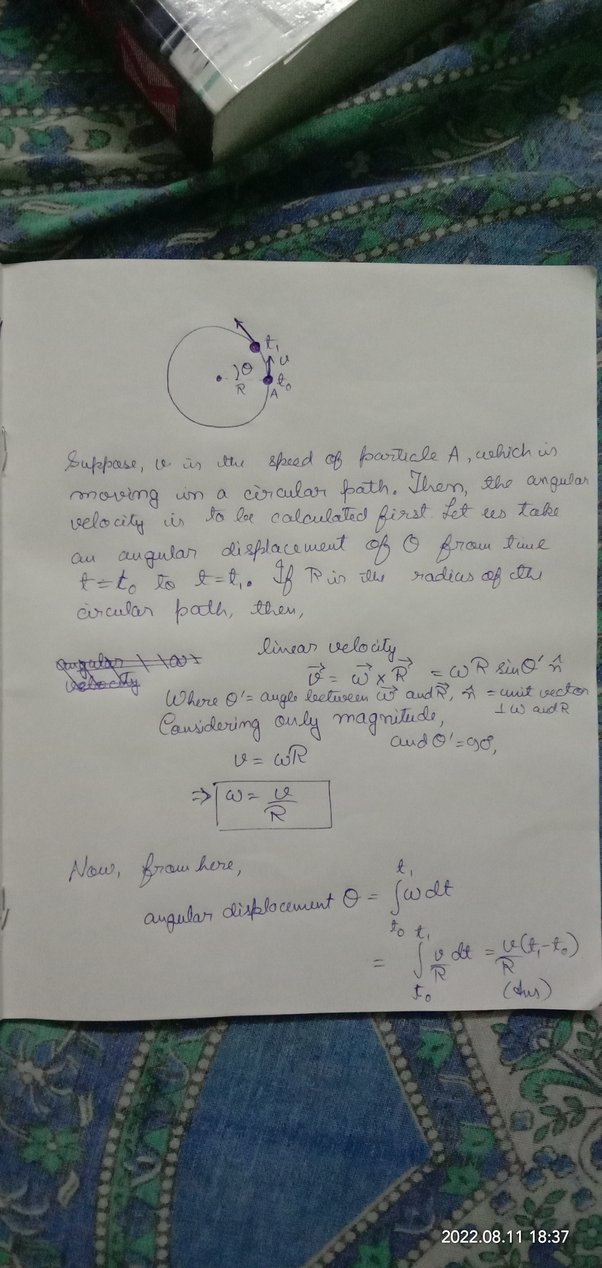 t₁
θ
v
R
A
t₀
Suppose, v is the speed of particle A, which is
moving in a circular path. Then, the angular
velocity is to be calculated first. Let us take
an angular displacement of θ from time
t = t₀ to t = t₁. If R is the radius of the
circular path, then,
linear velocity
v⃗ = ω⃗ × R⃗ = ωR sinθ' n̂
Where θ' = angle between ω⃗ and R⃗, n̂ = unit vector
⊥ ω and R
Considering only magnitude,
and θ' = 90°,
v = ωR
⇒ ω = v/R
Now, from here,
angular displacement θ = ∫_{t₀}^{t₁} ω dt
= ∫_{t₀}^{t₁} v/R dt = v/R (t₁ - t₀)
(Ans)
2022.08.11 18:37